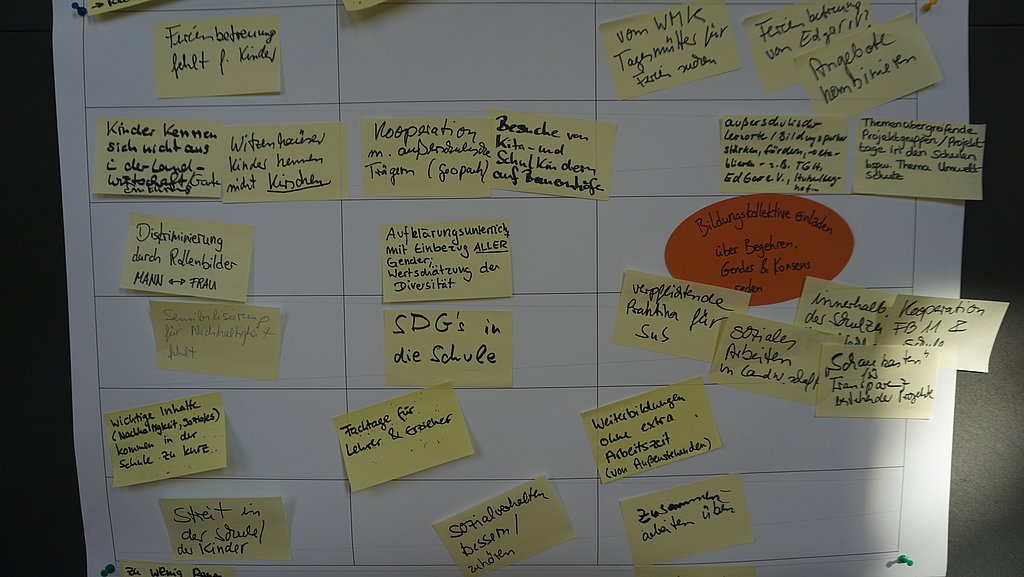 Ferienbetreuung
fehlt f. Kinder
vom WMK
Tagesmütter für
Ferien suchen
Ferienbetreuung
von Edgar i?
Angebote
kombinieren
Kinder kennen
sich nicht aus
in der Land-
wirtschaft/
Witzenhäuser
Kinder kennen
nicht Kirschen
Kooperation
m. außerschulischen
Trägern (Geopark)
Besuche von
Kita- und
Schulkindern
auf Bauernhöfe
außerschulische
Lernorte/Bildungspartner
stärken, fördern, eta-
blieren - z.B. TGH,
EdGar e.V.,
hof...
Themenübergreifende
Projektgruppen/Projekt-
tage in den Schulen
bspw. Thema Umwelt-
schutz
Diskriminierung
durch Rollenbilder
MANN ↔ FRAU
Aufklärungsunterricht
mit Einbezug ALLER
Gender;
Wertschätzung der
Diversität
Bildungskollektive einladen
über Begehren,
Gender & Konsens
reden
Sensibilisierung
für Nachhaltigkeit
fehlt
SDG's in
die Schule
verpflichtende
Praktika für
SuS
soziales
Arbeiten
in Landwirtschaft
innerhalb
der Schulen
Kooperation
FB 11 &
Schule
"Schaukasten"
Transparent
bestehende Projekte
wichtige Inhalte
(Nachhaltigkeit, Soziales)
kommen in der
Schule zu kurz
Fachtage für
Lehrer & Erzieher
Weiterbildungen
ohne extra
Arbeitszeit
(von Außenstehenden)
Streit in
der Schule/
der Kinder
Sozialverhalten
bessern/
zuhören
Zusammen-
arbeiten üben
zu wenig